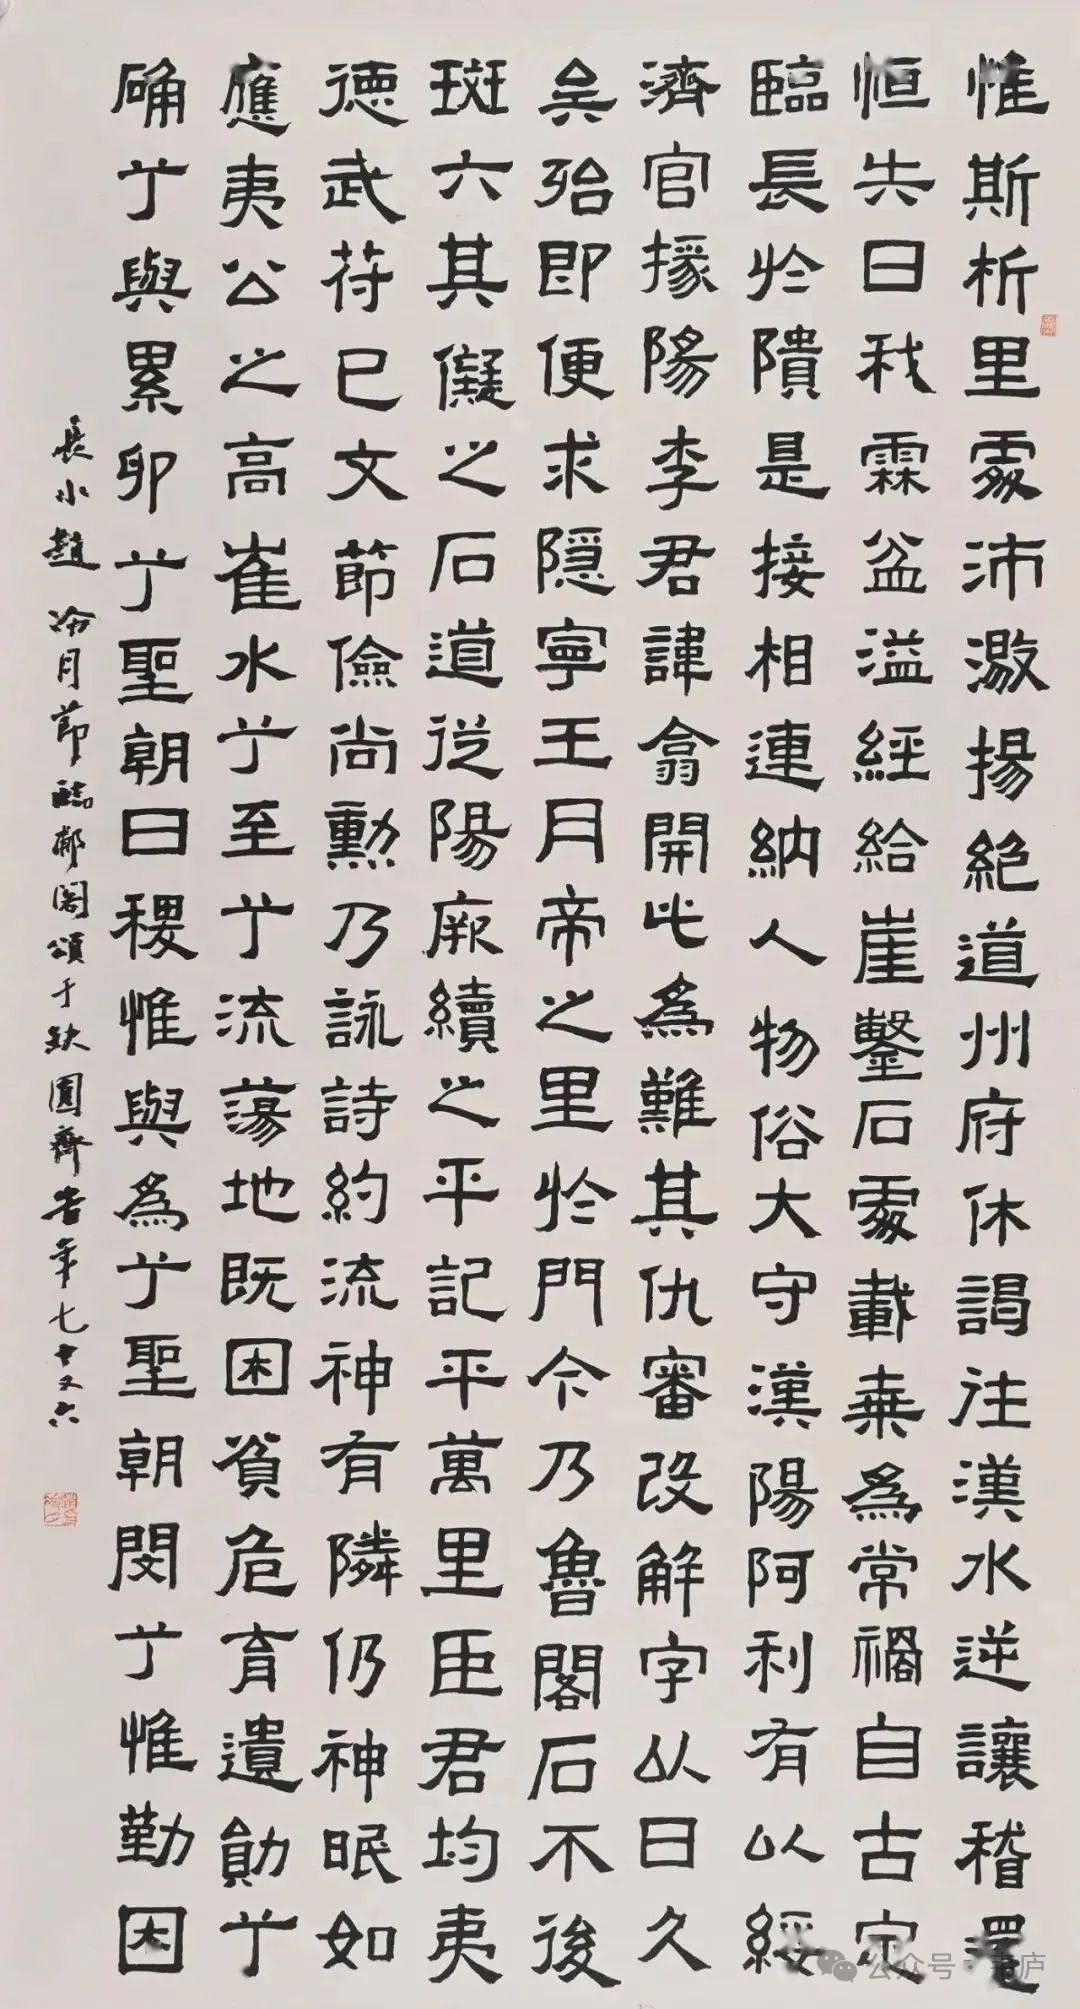 惟斯析里處沛潡揚絕道州府休謁往漢水逆讓稽滯
恒失日我霖盆溢經給崖鑿石處載乗為常禍自古定
臨長於隤是接相連納人物俗大守漢陽阿利有以綏
濟官掾陽李君諱翕開此為難其仇審改解字以日久
矣殆即便求隱寧王月帝之里於門今乃魯閣石不後
斑六其儗之石道從陽厥續之平記平萬里臣君均夷
德武苻已文節儉尚勲乃詠詩約流神有隣仍神眠如
應夷公之高崔水兮至兮流蕩地既困貧危育遺勛兮
确兮與累卵兮聖朝日稷惟與為兮聖朝閔兮惟勤因
長水趙冷月節臨郙閣頌于缺圓齋者年七十又六
公众号·